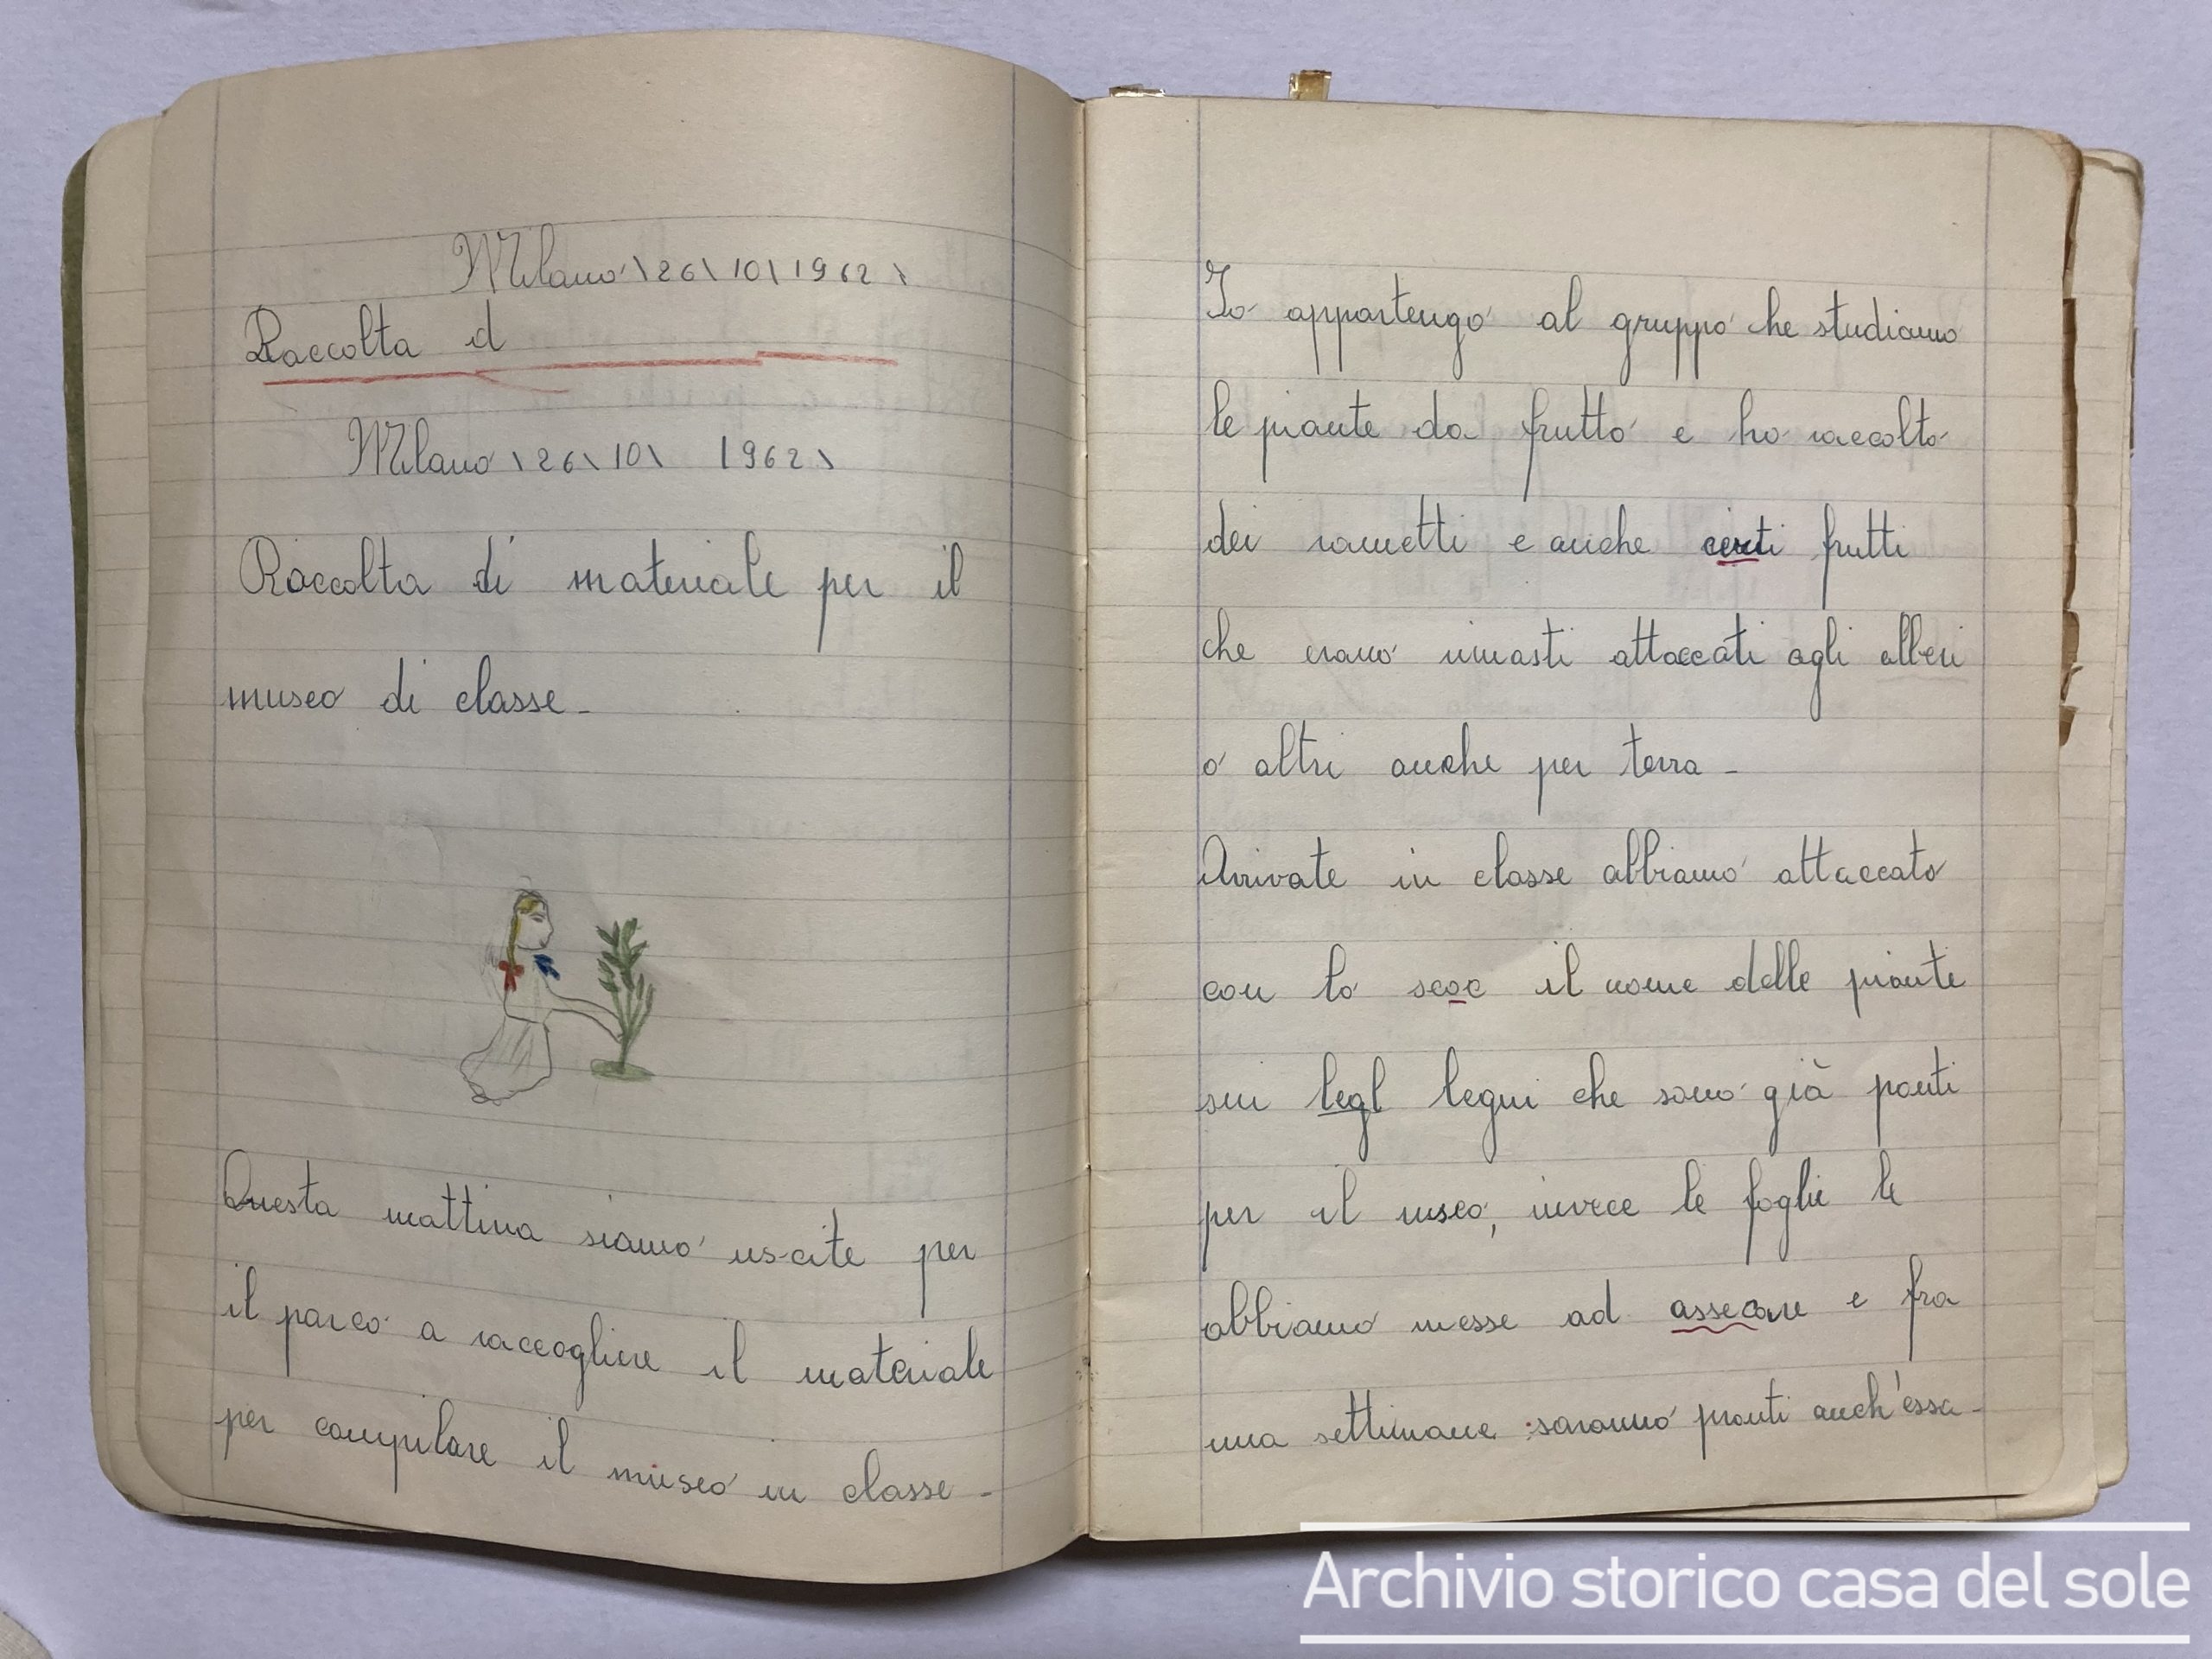 Milano\26\10\1962\
Raccolta d
Milano\26\10\ 1962\
Raccolta di materiale per il
museo di classe-
Questa mattina siamo uscite per
il parco a raccogliere il materiale
per compilare il museo in classe-
Io appartengo al gruppo che studiamo
le piante da frutto e ho raccolto
dei rametti e anche certi frutti
che erano rimasti attaccati agli alberi
o altri anche per terra-
Arrivate in classe abbiamo attaccato
con lo scoc il nome delle piante
sui legl legni che sono già ponti
per il useo, invece le foglie le
abbiamo messe ad assecare e fra
una settimane saranno pronti anch'essa-
Archivio storico casa del sole